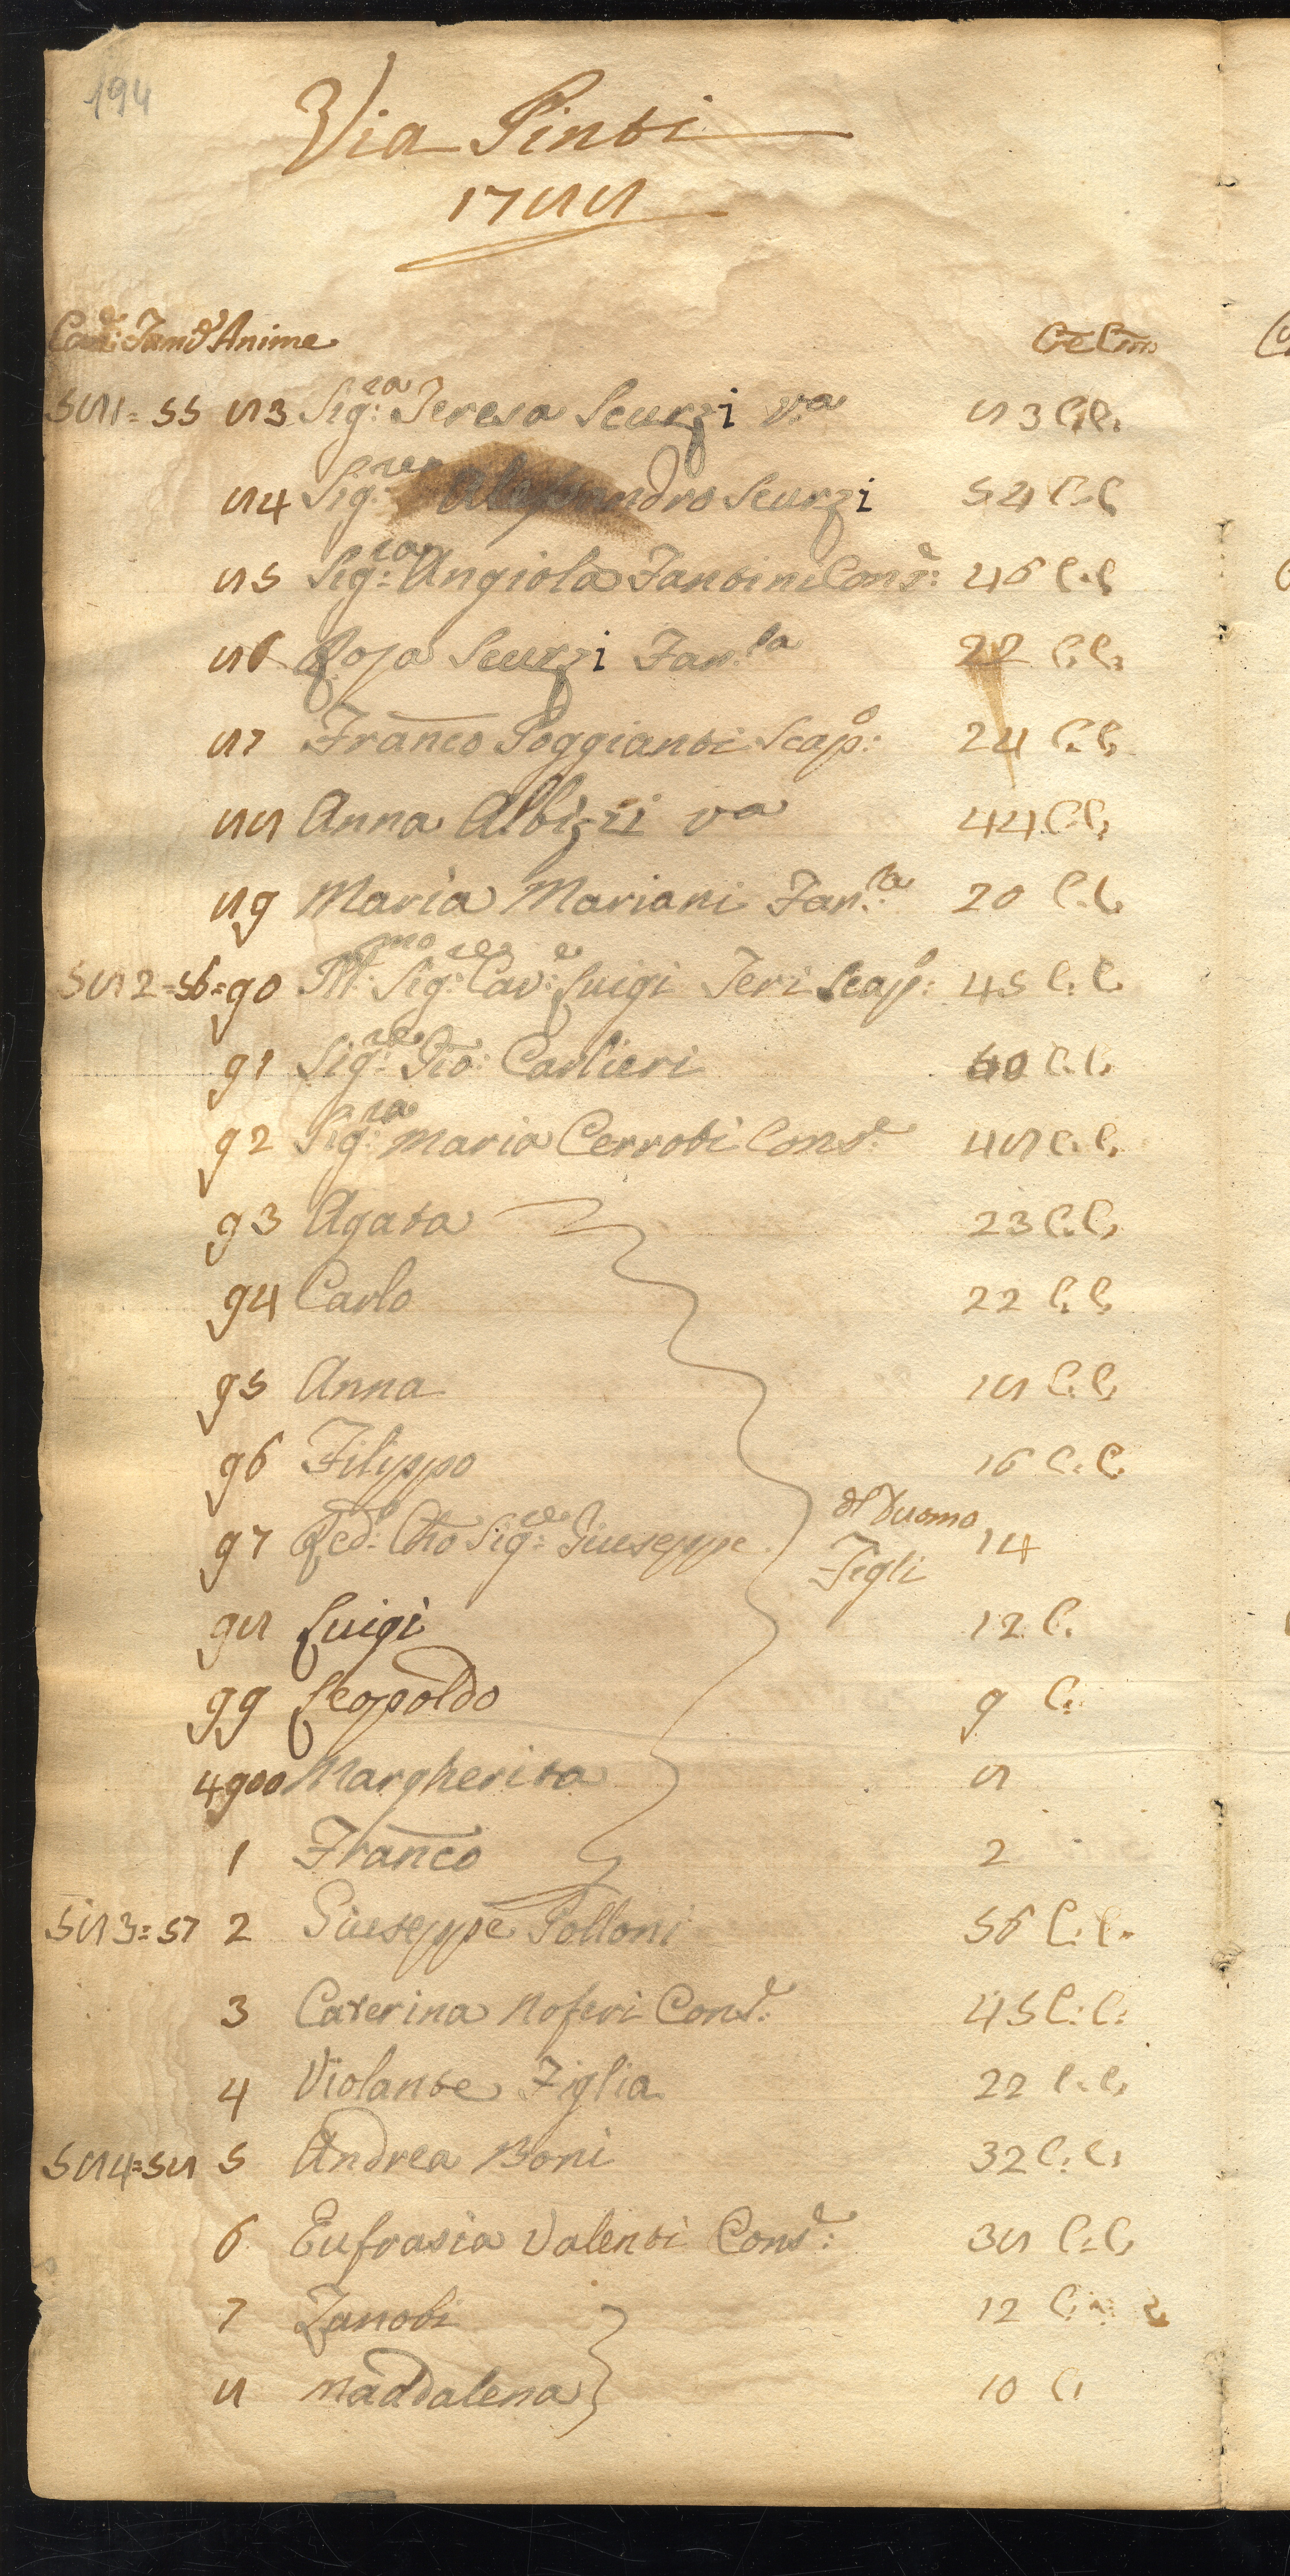 194
Via Pinti
1788
Cas:e Fam:e Anime Cre Cmo
581= 55 83 Sig:ra Teresa Scurzi va 83 C.C.
84 Sig:re Alessandro Scurzi 54 C.C.
85 Sig:ra Angiola Fantini Cons:e 46 C.C.
86 Rosa Scurzi Fan:la 22 C.C.
87 Franco Poggianti Scap:o 24 C.C.
88 Anna Albizzi va 44 C.C.
89 Maria Mariani Fan:la 20 C.C.
582=56=90 Ill:mo Sig:re Cav:e Luigi Teri Scap:o 45 C.C.
91 Sig:re Gio: Carlieri 60 C.C.
92 Sig:ra Maria Cerroti Cons:e 48 C.C.
93 Agata 23 C.C.
94 Carlo 22 C.C.
95 Anna 18 C.C.
96 Filippo 16 C.C.
97 Red:o Cho Sig:re Giuseppe del Duomo 14
Figli
98 Luigi 12 C.
99 Leopoldo 9 C.
4900 Margherita 8
1 Franco 2
583=57 2 Giuseppe Polloni 56 C.C.
3 Caterina Noferi Cons:e 45 C.C.
4 Violante Figlia 22 C.C.
584=58 5 Andrea Boni 32 C.C.
6 Eufrasia Valenti Cons:e 38 C.C.
7 Zanobi 12 C.
8 Maddalena 10 C.